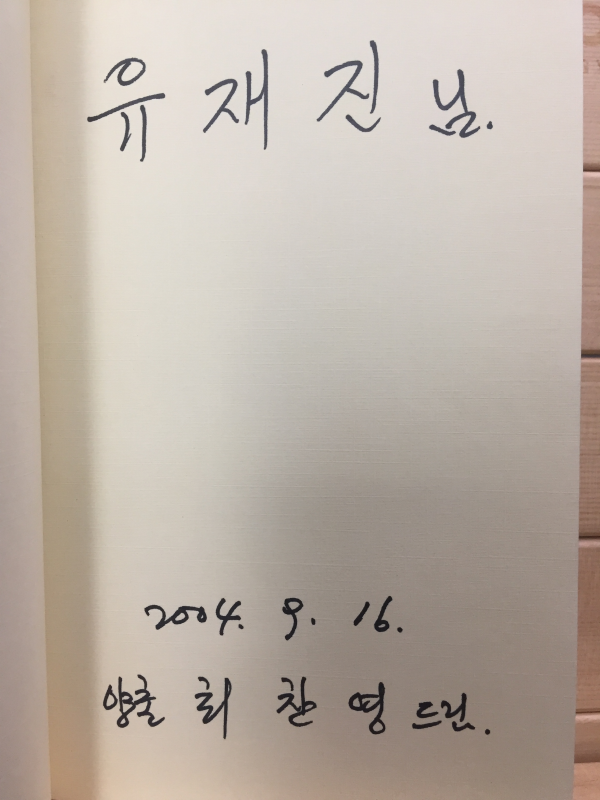 유 재 진 님.
2004. 9. 16.
최 찬 영 드림.